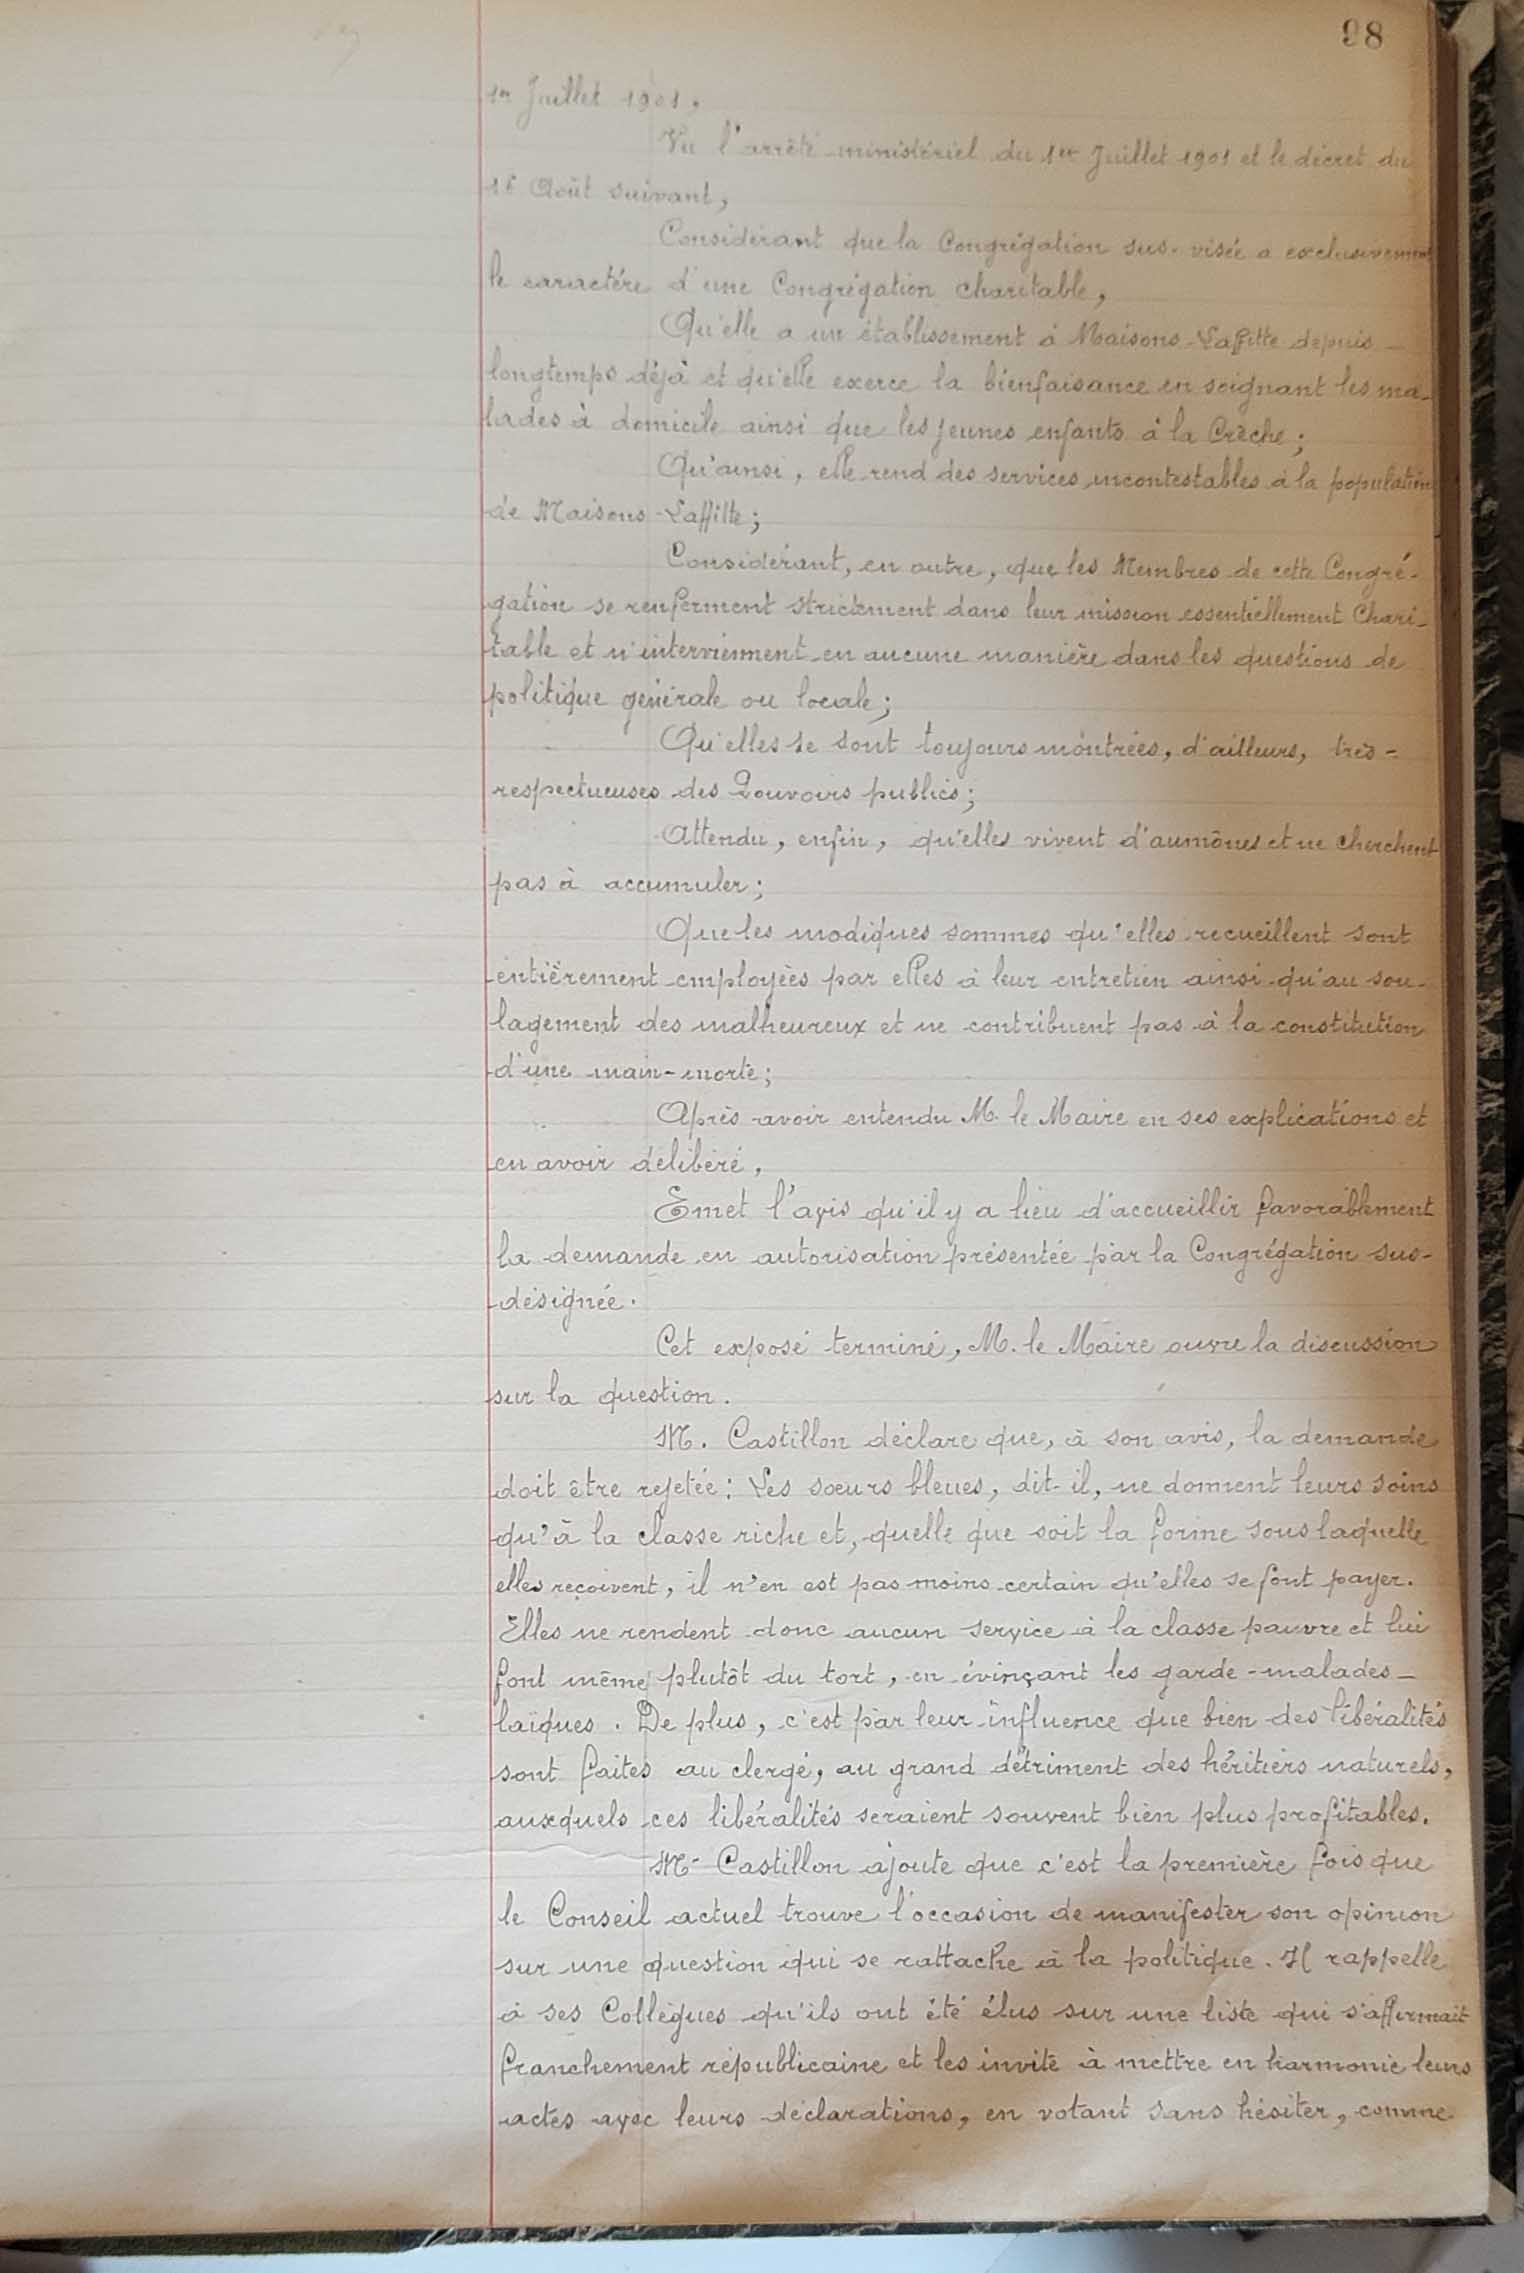 98
1er Juillet 1901.
Vu l'arrêté ministériel du 1er Juillet 1901 et le décret du
16 Août suivant,
Considérant que la Congrégation sus-visée a exclusivement
le caractère d'une Congrégation charitable,
Qu'elle a un établissement à Maisons-Laffitte depuis
longtemps déjà et qu'elle exerce la bienfaisance en soignant les ma-
lades à domicile ainsi que les jeunes enfants à la Crèche;
Qu'ainsi, elle rend des services incontestables à la population
de Maisons-Laffitte;
Considérant, en outre, que les Membres de cette Congré-
gation se renferment strictement dans leur mission essentiellement Chari-
table et n'interviennent en aucune manière dans les questions de
politique générale ou locale;
Qu'elles se sont toujours montrées, d'ailleurs, très-
respectueuses des Pouvoirs publics;
Attendu, enfin, qu'elles vivent d'aumônes et ne cherchent
pas à accumuler;
Que les modiques sommes qu'elles recueillent sont
entièrement employées par elles à leur entretien ainsi qu'au sou-
lagement des malheureux et ne contribuent pas à la constitution
d'une main-morte;
Après avoir entendu M. le Maire en ses explications et
en avoir délibéré,
Emet l'avis qu'il y a lieu d'accueillir favorablement
la demande en autorisation présentée par la Congrégation sus-
désignée.
Cet exposé terminé, M. le Maire ouvre la discussion
sur la question.
M. Castillon déclare que, à son avis, la demande
doit être rejetée: Les sœurs bleues, dit-il, ne donnent leurs soins
qu'à la classe riche et, quelle que soit la forme sous laquelle
elles reçoivent, il n'en est pas moins certain qu'elles se font payer.
Elles ne rendent donc aucun service à la classe pauvre et lui
font même plutôt du tort, en évinçant les garde-malades
laïques. De plus, c'est par leur influence que bien des libéralités
sont faites au clergé, au grand détriment des héritiers naturels,
auxquels ces libéralités seraient souvent bien plus profitables.
M. Castillon ajoute que c'est la première fois que
le Conseil actuel trouve l'occasion de manifester son opinion
sur une question qui se rattache à la politique. Il rappelle
à ses Collègues qu'ils ont été élus sur une liste qui s'affirmait
franchement républicaine et les invite à mettre en harmonie leurs
actes avec leurs déclarations, en votant sans hésiter, comme